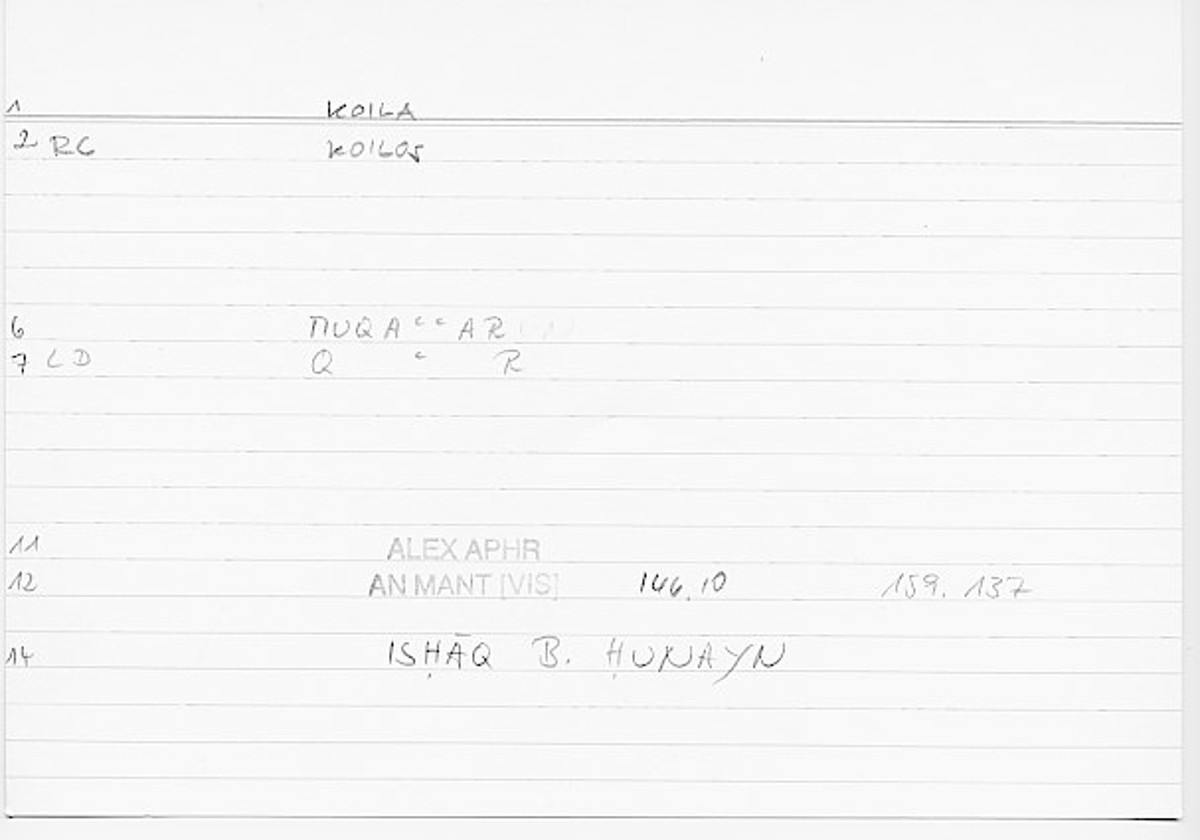 1 KOILA
2 RG KOILOS
6 MUQAʿʿAR
7 LD Q ʿ R
11 ALEX APHR
12 AN MANT [VIS] 146,10 159.137
14 ISḤĀQ B. ḤUNAYN